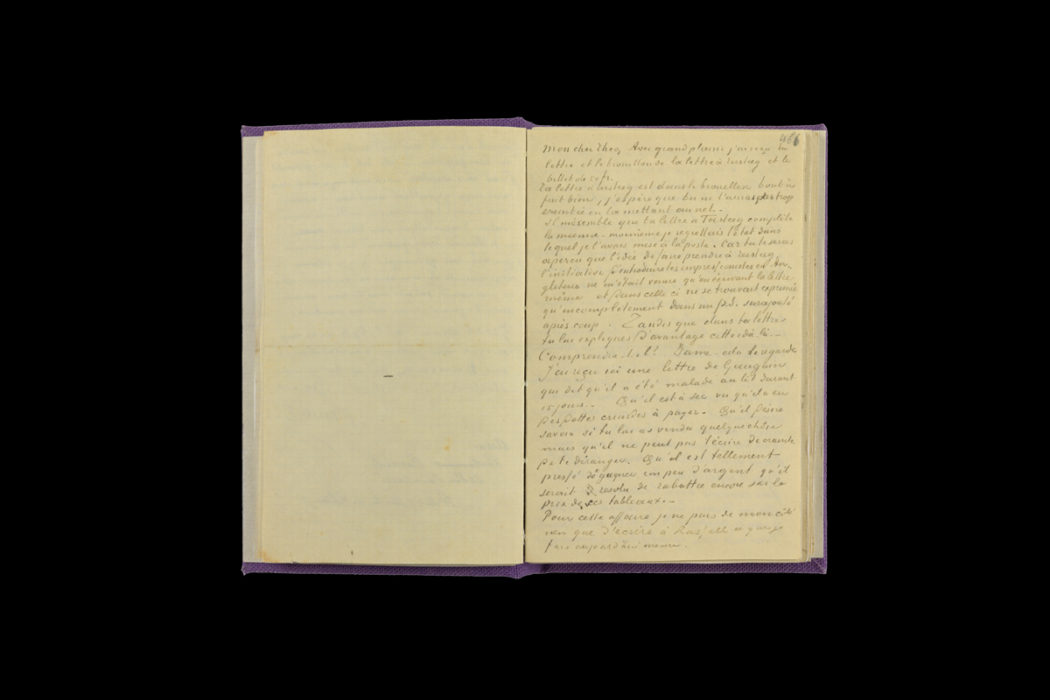 466
Mon cher Theo, Avec grand plaisir j'ai reçu ta
lettre et le brouillon de la lettre à Tersteeg et le
billet de 50 fr.
Ta lettre à Tersteeg est dans le brouillon bout à
fait bien, j'espère que tu ne l'auras pas trop
en la mettant au net.—
Il me semble que ta lettre à Tersteeg complète
la mienne — moi même je regrettais l'état dans
lequel je l'avais mise à la poste. Car tu te seras
aperçu que l'idée de faire prendre à Tersteeg
l'initiative d'introduire les impressionistes en An-
gleterre ne m'était venue qu'en écrivant la lettre
même et dans celle ci ne se trouvait exprimée
qu'incomplètement dans un p.S. surajouté
après coup. Tandis que dans ta lettre
tu lui expliques d'avantage cette idée là.—
Comprendra-t-il? Dame — cela le regarde
J'ai reçu ici une lettre de Gauguin
qui dit qu'il a été malade au lit durant
15 jours.— Qu'il est à sec vu qu'il a eu
des dettes criardes à payer. Qu'il désire
savoir si tu lui as vendu quelque chose
mais qu'il ne peut pas t'écrire de crainte
de te déranger. Qu'il est tellement
pressé de gagner un peu d'argent qu'il
serait résolu de rabattre encore sur le
prix de ses tableaux.—
Pour cette affaire je ne puis de mon côté
rien que d'écrire à Russell ce que je
fais aujourd'hui même.